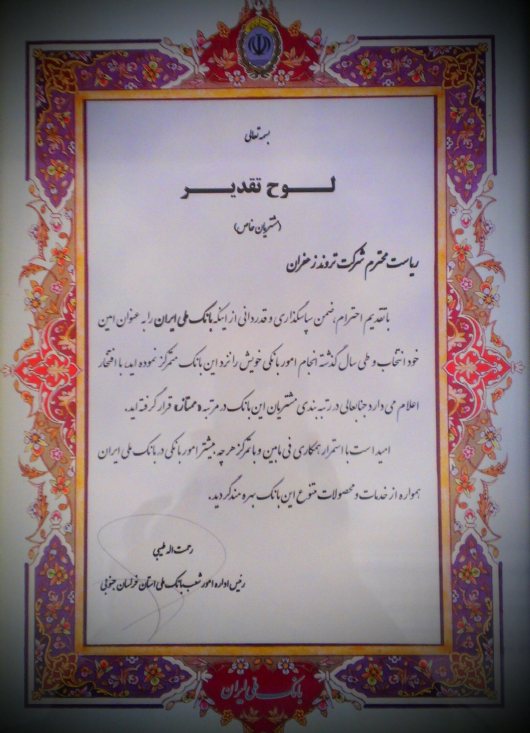 بسمه تعالی
لوح تقدیر
(مشتریان خاص)
ریاست محترم شرکت تروند زعفران
با تقدیم احترام، ضمن سپاسگذاری و قدردانی از اینکه بانک ملی ایران را به عنوان امین
خود انتخاب و طی سال گذشته انجام امور بانکی خویش را نزد این بانک متمرکز نموده اید، با افتخار
اعلام می دارد جنابعالی در رتبه بندی مشتریان این بانک در مرتبه «ممتاز» قرار گرفته اید.
امید است با استمرار همکاری فی مابین و با تمرکز هر چه بیشتر امور بانکی در بانک ملی ایران
همواره از خدمات و محصولات متنوع این بانک بهره مند گردید.
رحمت اله طیبی
رئیس اداره امور شعب بانک ملی استان خراسان جنوبی
بانک ملی ایران